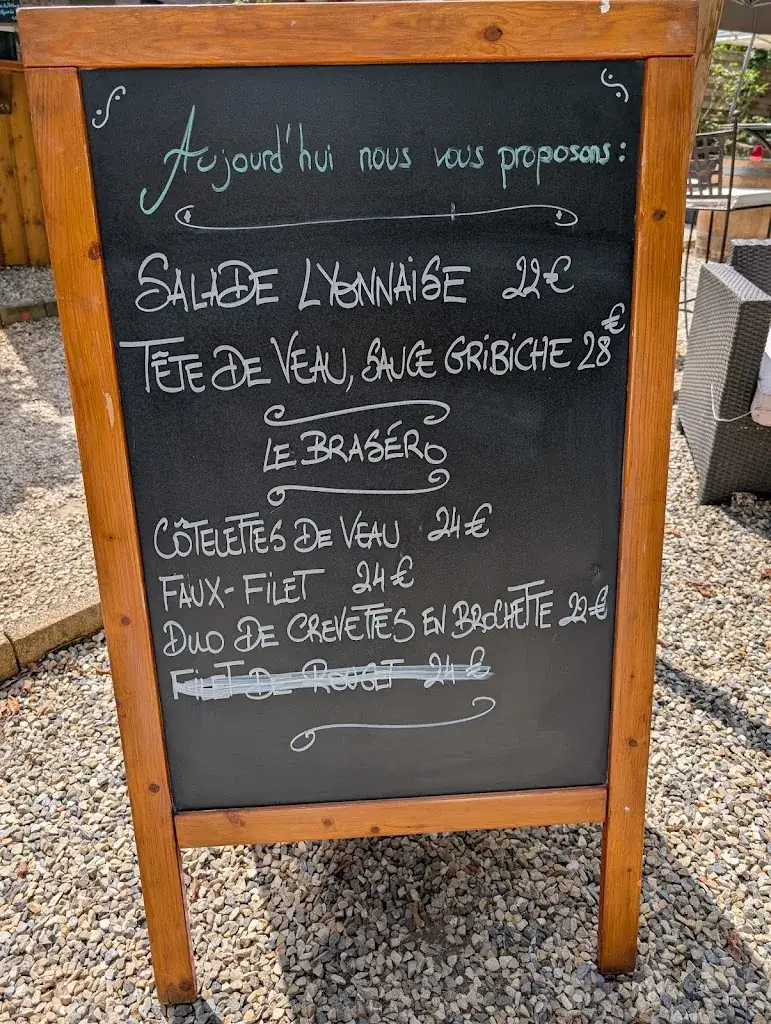 Aujourd'hui nous vous proposons:
SALADE LYONNAISE 22€
TÊTE DE VEAU, SAUCE GRIBICHE 28€
LE BRASÉRO
CÔTELETTES DE VEAU 24€
FAUX-FILET 24€
DUO DE CREVETTES EN BROCHETTE 22€
FILET DE ROUGET 24€